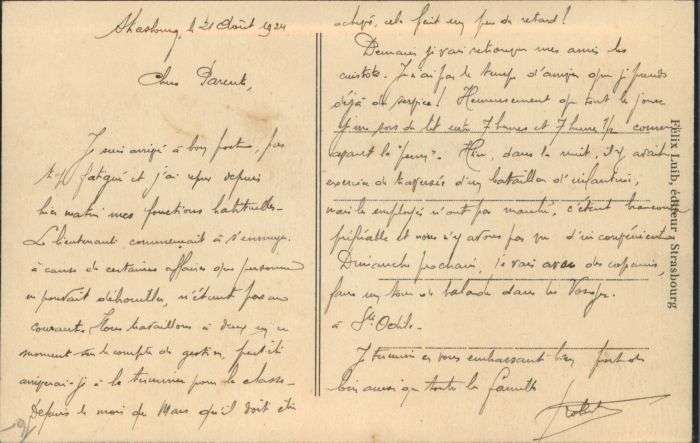 Strasbourg, le 21 Août 1924
Chers Parents,
Je suis arrivé à bon port, pas
trop fatigué et j'ai repris depuis
hier matin mes fonctions habituelles.
Le lieutenant commençait à s'ennuyer
à cause de certaines affaires que personne
ne pouvait débrouiller, n'étant pas au
courant. Nous travaillons à deux en ce
moment sur le compte de gestion. Peut-être
arriverai-je à le terminer pour la classe.
Depuis le mois de Mars qu'il doit être
achevé, cela fait un peu de retard !
Demain je vais retrouver mes amis les
cuistots. Je n'ai pas le temps d'arriver que je prends
déjà du service ! Heureusement que tout le jour
je me sors du lit entre 7 heures et 7 heures 1/2 comme
avant la "perm". Hier, dans la nuit, il y avait
exercice de traversée d'un bataillon d'infanterie,
mais les employés n'ont pas marché, c'était
préférable et nous n'y avons pas vu d'inconvénient.
Dimanche prochain, je vais avec des copains,
faire un tour de balade dans les Vosges
à Ste Odile.
Je termine en vous embrassant bien fort
bien ainsi que toute la famille
Robert
Félix Luib, éditeur - Strasbourg